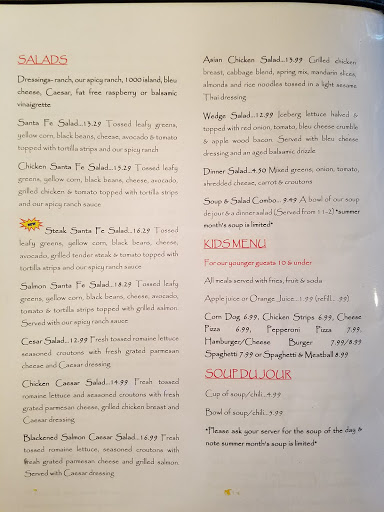 SALADS
Dressings- ranch, our spicy ranch, 1000 island, bleu
cheese, Caesar, fat free raspberry or balsamic
vinaigrette
Santa Fe Salad...13.29 Tossed leafy greens,
yellow corn, black beans, cheese, avocado & tomato
topped with tortilla strips and our spicy ranch
Chicken Santa Fe Salad...15.29 Tossed leafy
greens, yellow corn, black beans, cheese, avocado,
grilled chicken & tomato topped with tortilla strips
and our spicy ranch sauce
Steak Santa Fe Salad...16.29 Tossed
leafy greens, yellow corn, black beans, cheese,
avocado, grilled tender steak & tomato topped with
tortilla strips and our spicy ranch sauce
Salmon Santa Fe Salad...18.29 Tossed leafy
greens, yellow corn, black beans, cheese, avocado,
tomato & tortilla strips topped with grilled salmon.
Served with our spicy ranch sauce
Cesar Salad...12.99 Fresh tossed romaine lettuce
seasoned croutons with fresh grated parmesan
cheese and Caesar dressing
Chicken Caesar Salad...14.99 Fresh tossed
romaine lettuce and seasoned croutons with fresh
grated parmesan cheese, grilled chicken breast and
Caesar dressing
Blackened Salmon Caesar Salad...16.99 Fresh
tossed romaine lettuce, seasoned croutons with
fresh grated parmesan cheese and grilled salmon.
Served with Caesar dressing
Asian Chicken Salad...13.99 Grilled chicken
breast, cabbage blend, spring mix, mandarin slices,
almonds and rice noodles tossed in a light sesame
Thai dressing
Wedge Salad...12.99 Iceberg lettuce halved &
topped with red onion, tomato, bleu cheese crumble
& apple wood bacon. Served with bleu cheese
dressing and an aged balsamic drizzle
Dinner Salad...4.50 Mixed greens, onion, tomato,
shredded cheese, carrot & croutons
Soup & Salad Combo... 9.49 A bowl of our soup
de jour & a dinner salad (Served from 11-2) *summer
month's soup is limited*
KIDS MENU
For our younger guests 10 & under
All meals served with fries, fruit & soda
Apple juice or Orange Juice...1.99 (refill... .99)
Corn Dog 6.99, Chicken Strips 6.99, Cheese
Pizza 6.99, Pepperoni Pizza 7.99,
Hamburger/Cheese Burger 7.99/8.99
Spaghetti 7.99 or Spaghetti & Meatball 8.99
SOUP DU JOUR
Cup of soup/chili...4.99
Bowl of soup/chili...5.99
*Please ask your server for the soup of the day &
note summer month's soup is limited*